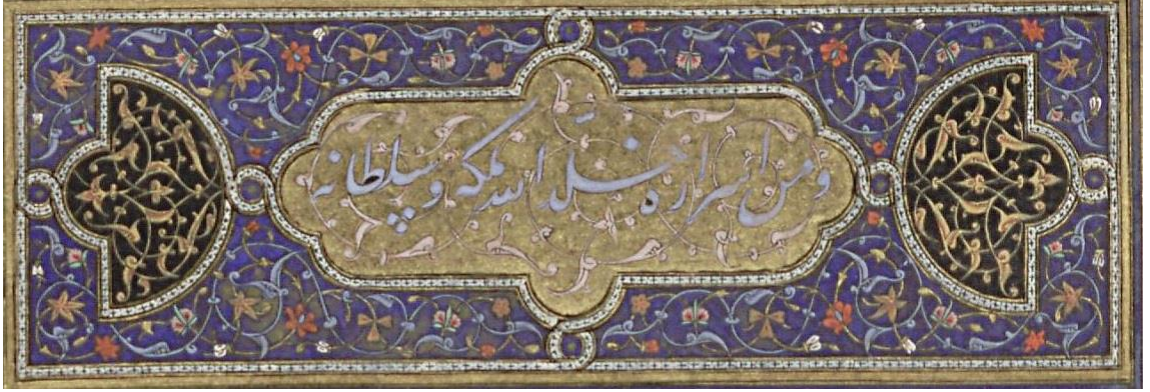 و من اسراره خلد الله ملكه و سلطانه